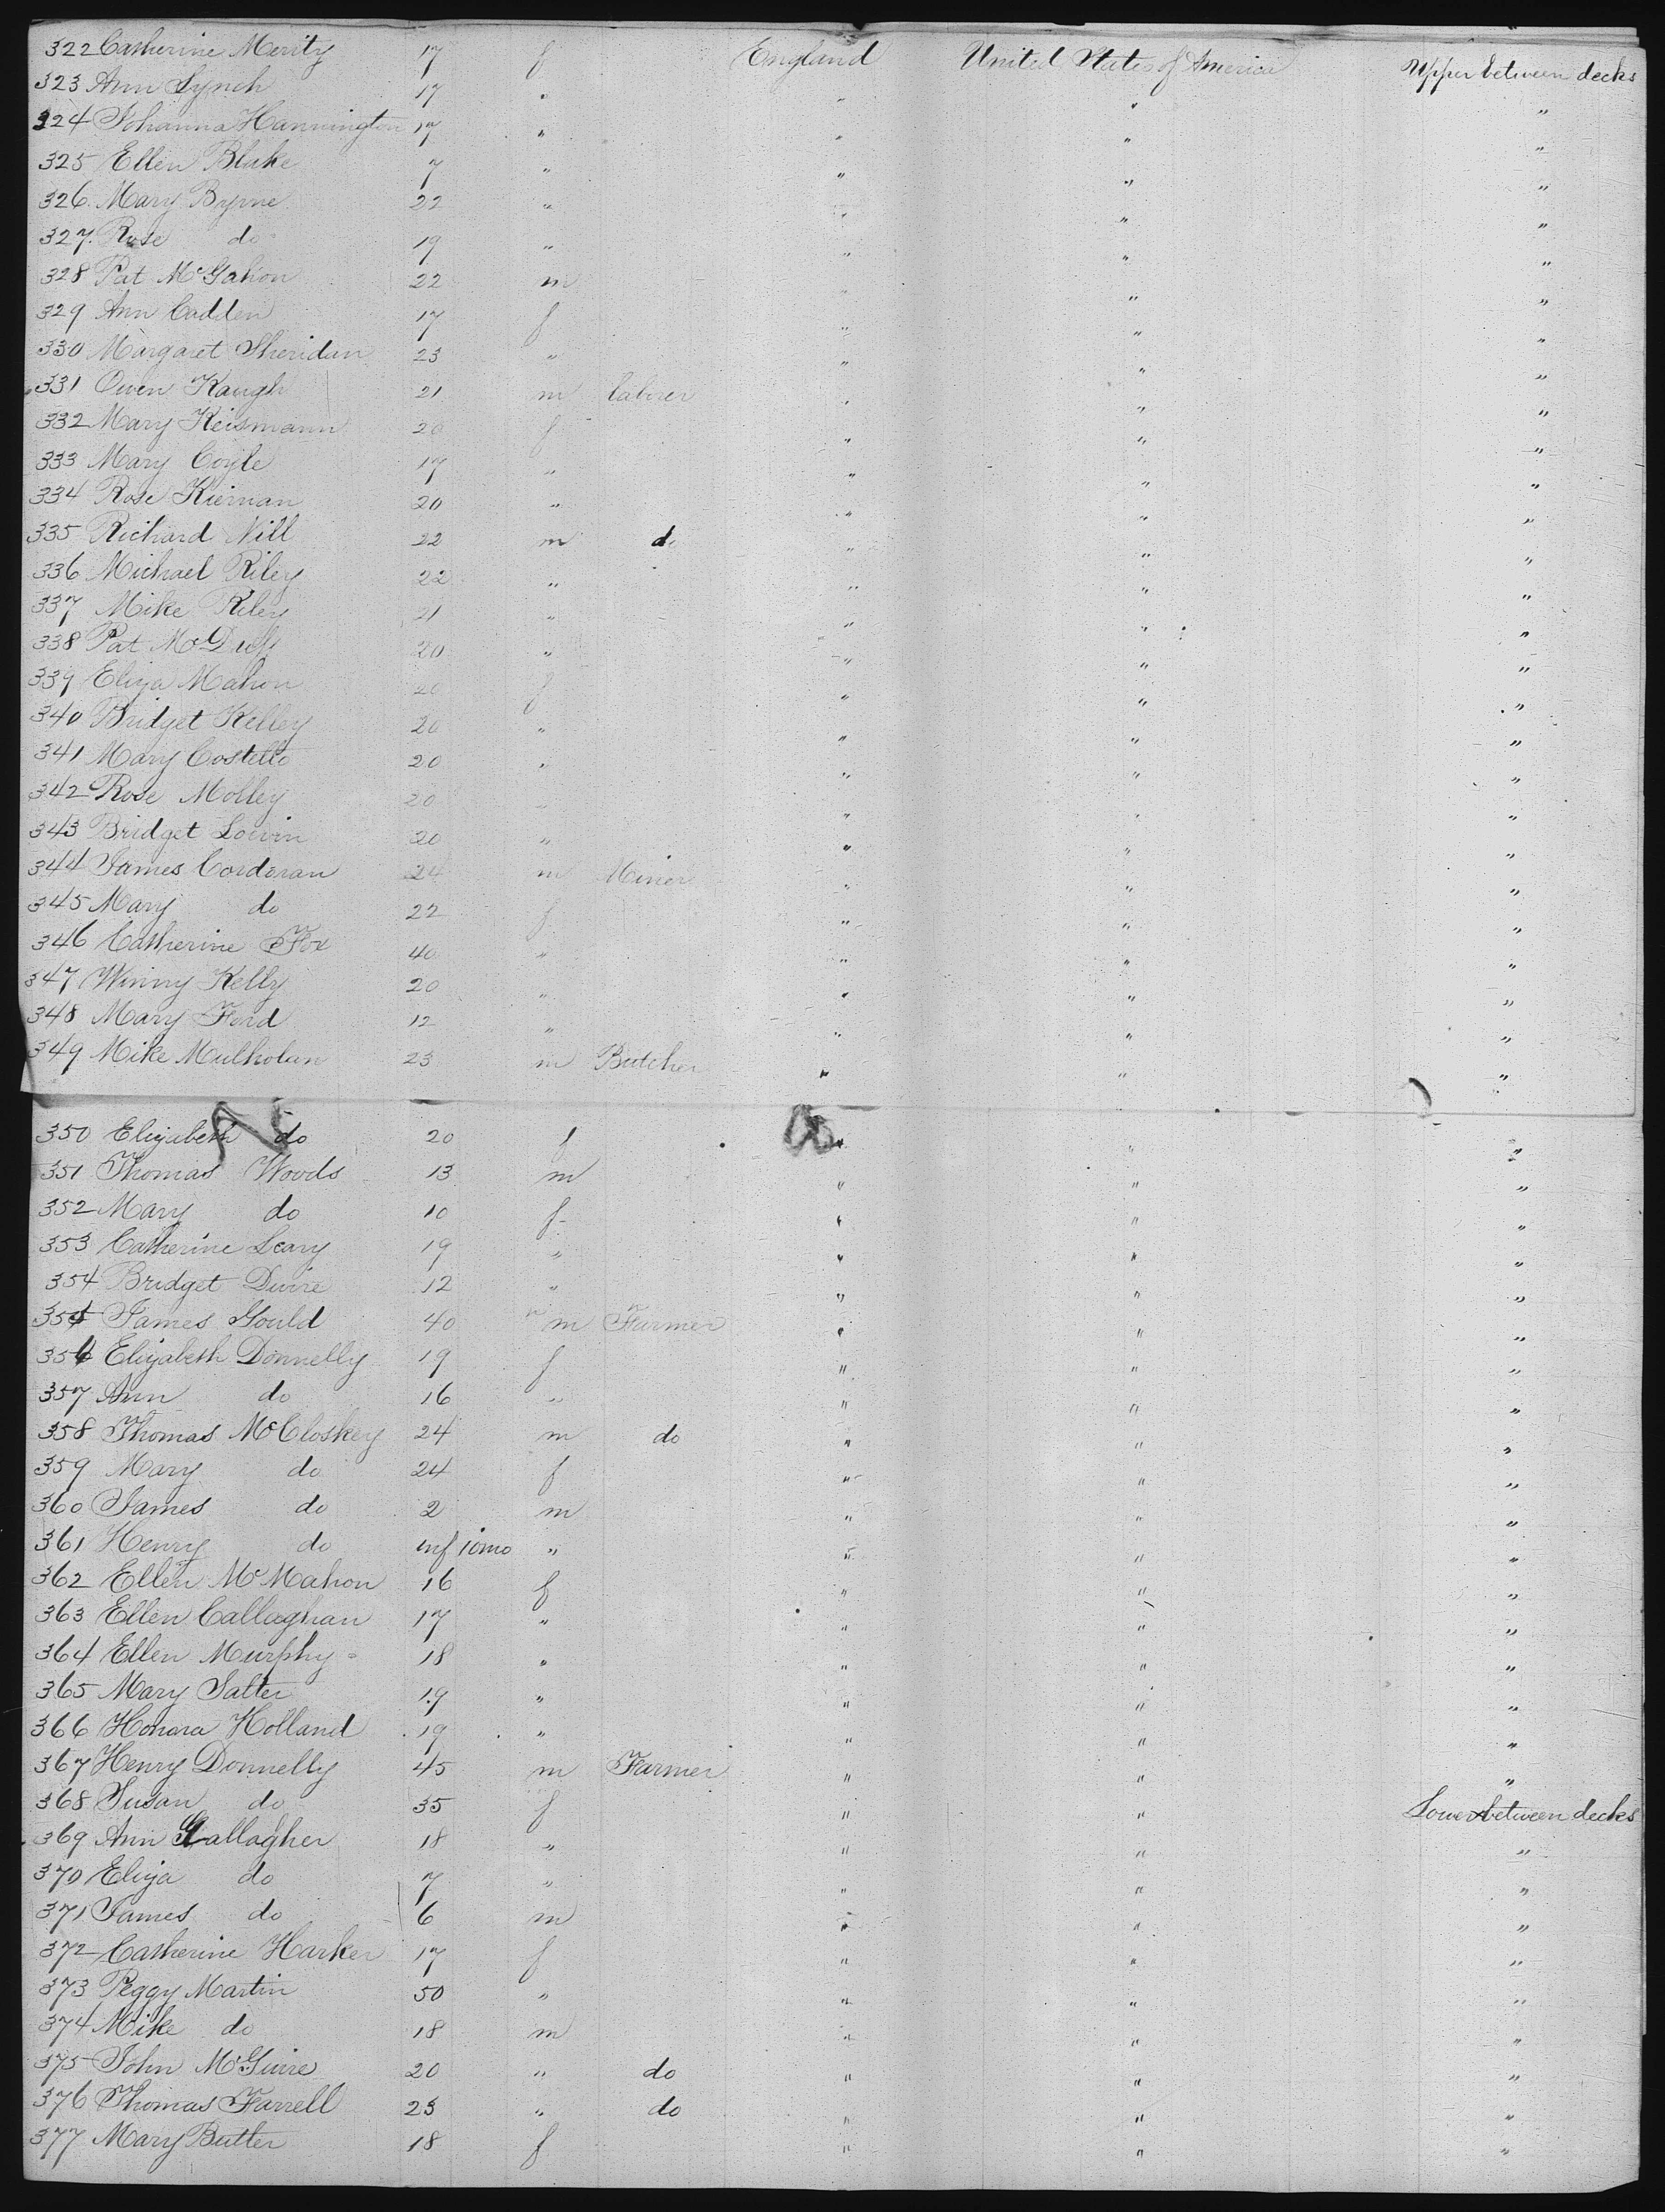 322 Catherine Merity 17 f England United States of America Upper between decks
323 Ann Lynch 17 " " " "
324 Johanna Hannington 17 " " " "
325 Ellen Blake 7 " " " "
326. Mary Byrne 22 " " " "
327. Rose do 19 " " " "
328 Pat McGahon 22 m " " "
329 Ann Cadden 17 f " " "
330 Margaret Sheridan 23 " " " "
331 Owen Kaugh 21 m laborer " " "
332 Mary Keismann 20 f " " "
333 Mary Coyle 17 " " " "
334 Rose Kiernan 20 " " " "
335 Richard Nill 22 m do " " "
336 Michael Riley 22 " " " "
337 Mike Riley 21 " " " "
338 Pat McDuff 20 " " " "
339 Eliza Mahon 20 f " " "
340 Bridget Kelley 20 " " " "
341 Mary Costello 20 " " " "
342 Rose Molley 20 " " " "
343 Bridget Lowin 20 " " " "
344 James Corderan 24 m Miner " " "
345 Mary do 22 f " " "
346 Catherine Fox 40 " " " "
347 Winny Kelly 20 " " " "
348 Mary Ford 12 " " " "
349 Mike Mulholan 23 m Butcher " " "
350 Elizabeth do 20 f " " "
351 Thomas Woods 13 m " " "
352 Mary do 10 f " " "
353 Catherine Leary 19 " " " "
354 Bridget Divire 12 " " " "
355 James Gould 40 m Farmer " " "
356 Elizabeth Donnelly 19 f " " "
357 Ann do 16 " " " "
358 Thomas McCloskey 24 m do " " "
359 Mary do 24 f " " "
360 James do 2 m " " "
361 Henry do inf 10mo " " " "
362 Ellen McMahon 16 f " " "
363 Ellen Callaghan 17 " " " "
364 Ellen Murphy 18 " " " "
365 Mary Salter 19 " " " "
366 Honora Holland 19 " " " "
367 Henry Donnelly 45 m Farmer " " "
368 Susan do 35 f " " Lower between decks
369 Ann Gallagher 18 " " " "
370 Eliza do 7 " " " "
371 James do 6 m " " "
372 Catherine Harker 17 f " " "
373 Peggy Martin 50 " " " "
374 Mike do 18 m " " "
375 John McGuire 20 " do " " "
376 Thomas Farrell 23 " do " " "
377 Mary Butler 18 f " " "